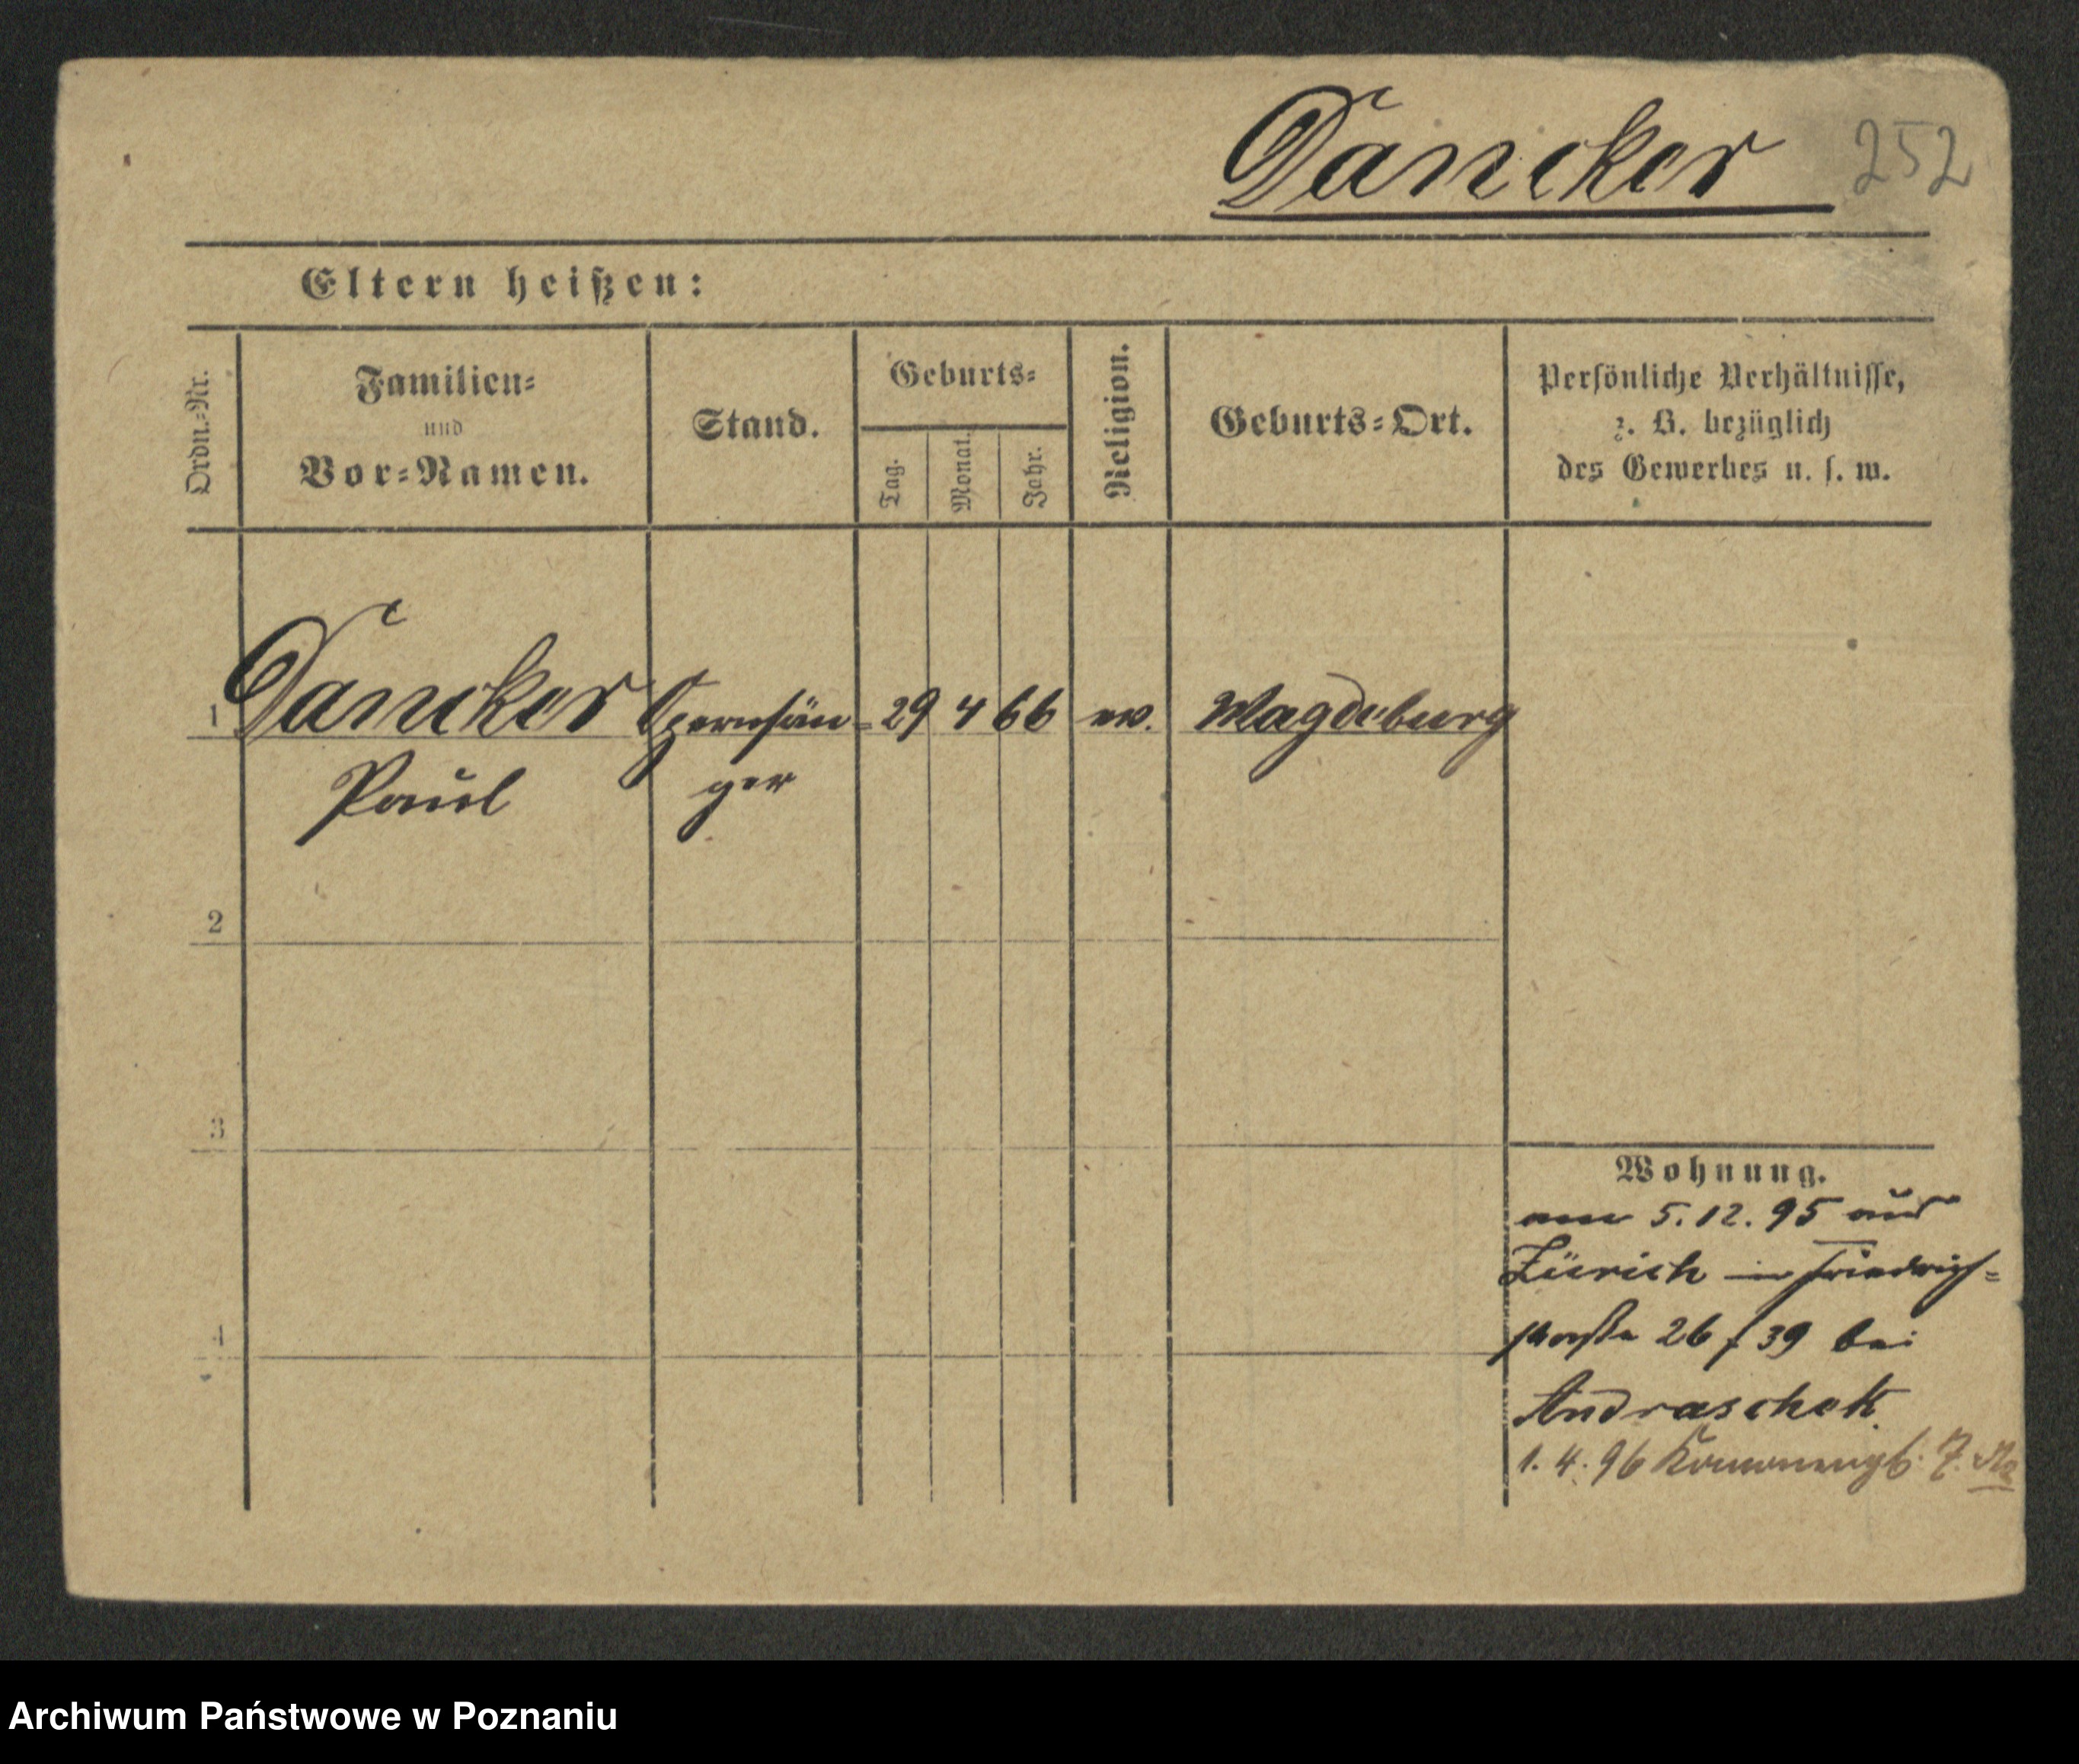 Dancker 252
Eltern heißen:
Ordn.-Nr.
Familien-
und
Vor-Namen.
Stand.
Geburts-
Tag.
Monat.
Jahr.
Religion.
Geburts-Ort.
Persönliche Verhältnisse,
z. B. bezüglich
des Gewerbes u. s. w.
1 Dancker Opernsän- 29 4 66 ev. Magdeburg
Paul ger
2
3
4
Wohnung.
am 5.12.95 aus
Zürich in
straße 26 f 39 bei
Andraschek
1.4.96
Archiwum Państwowe w Poznaniu